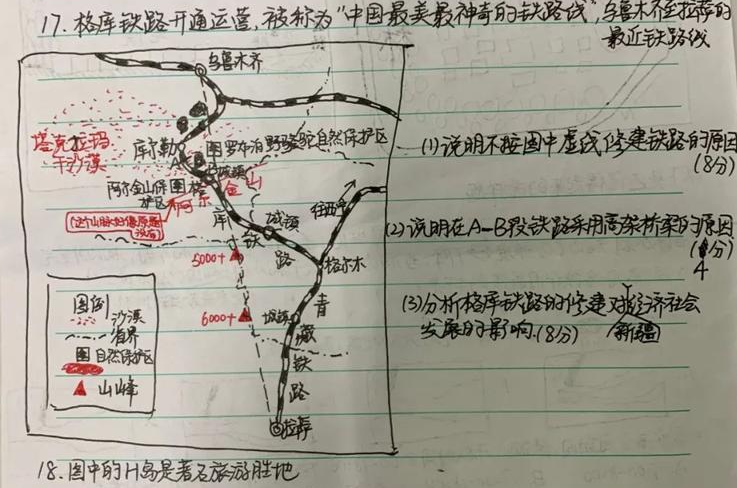 17. 格库铁路开通运营,被称为"中国最美最神奇的铁路线",乌鲁木齐至拉萨的
最近铁路线
乌鲁木齐
塔克拉玛
干沙漠
库尔勒
罗布泊野骆驼自然保护区
阿尔金山保
护区
格
阿尔金山
库
城镇
铁
路
往西宁
5000+
格尔木
6000+
城镇
青
藏
铁
路
拉萨
图例
沙漠
省界
自然保护区
山峰
(1)说明不按图中虚线修建铁路的原因
(8分)
(2)说明在A-B段铁路采用高架桥梁的原因
(4分)
(3)分析格库铁路的修建对新疆经济社会
发展的影响.(8分)
18.图中的H岛是著名旅游胜地